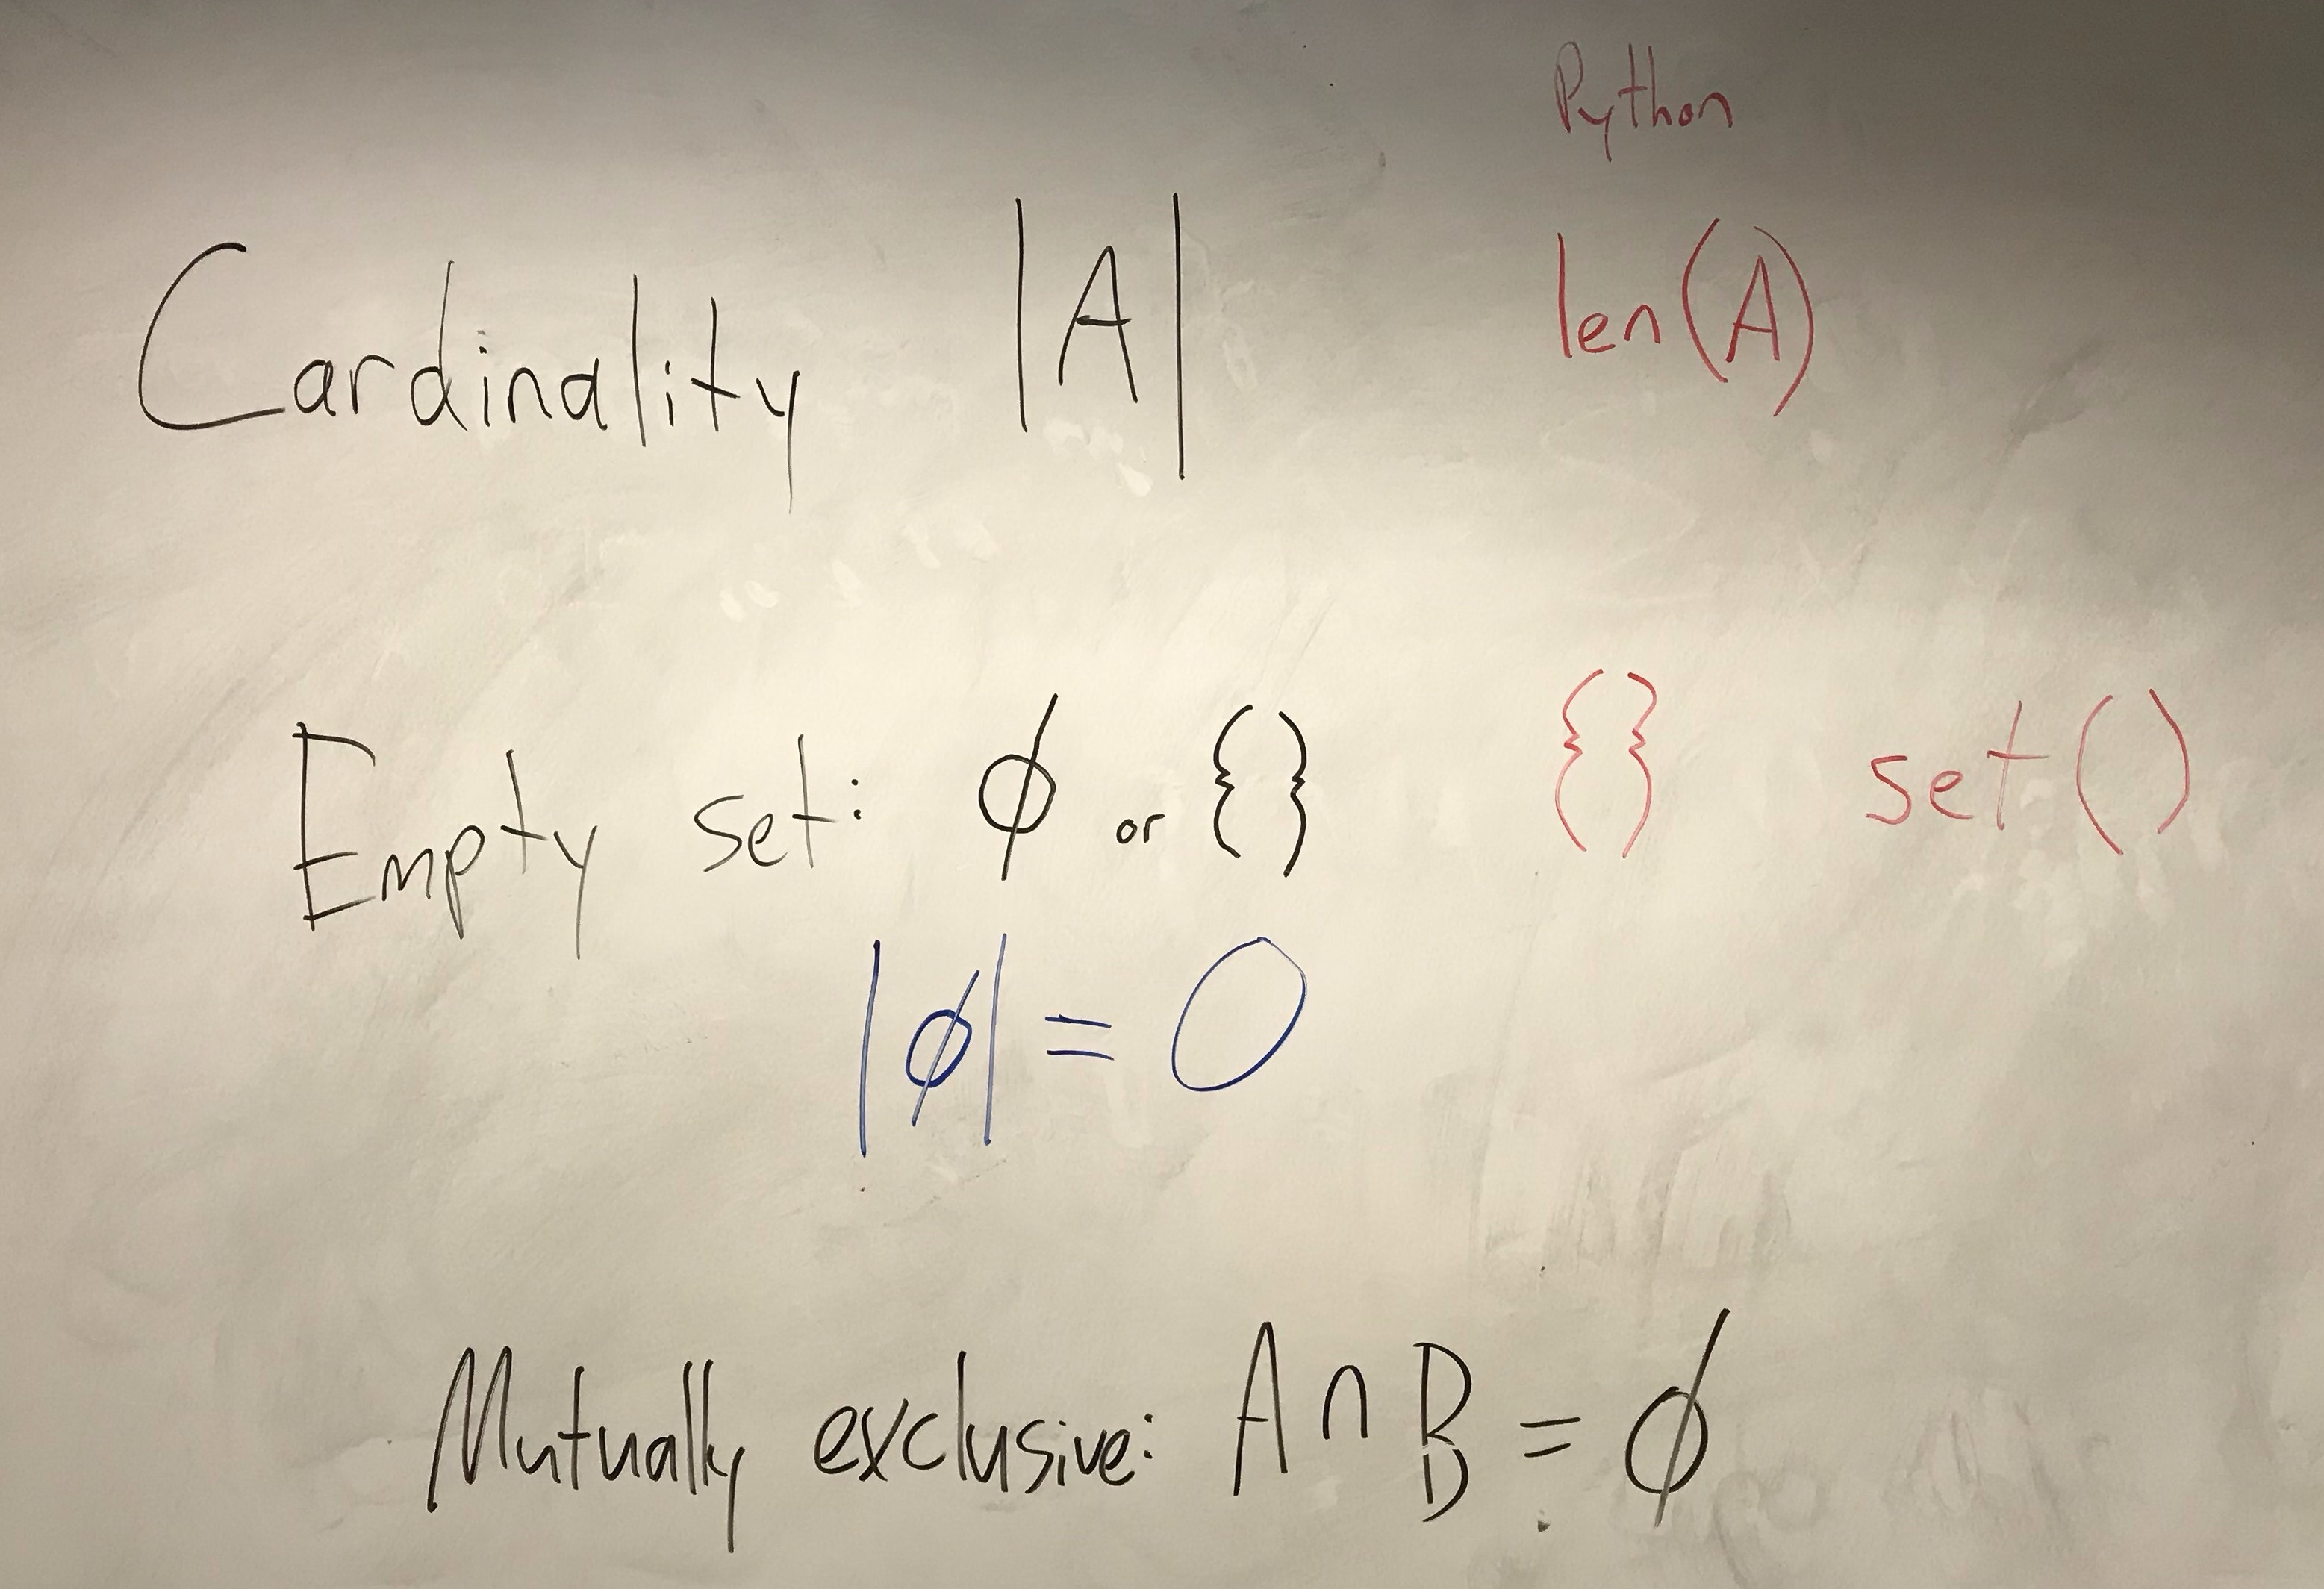 Python
Cardinality |A| len(A)
Empty set: ϕ or {} {} set()
|ϕ| = 0
Mutually exclusive: A ∩ B = ϕ